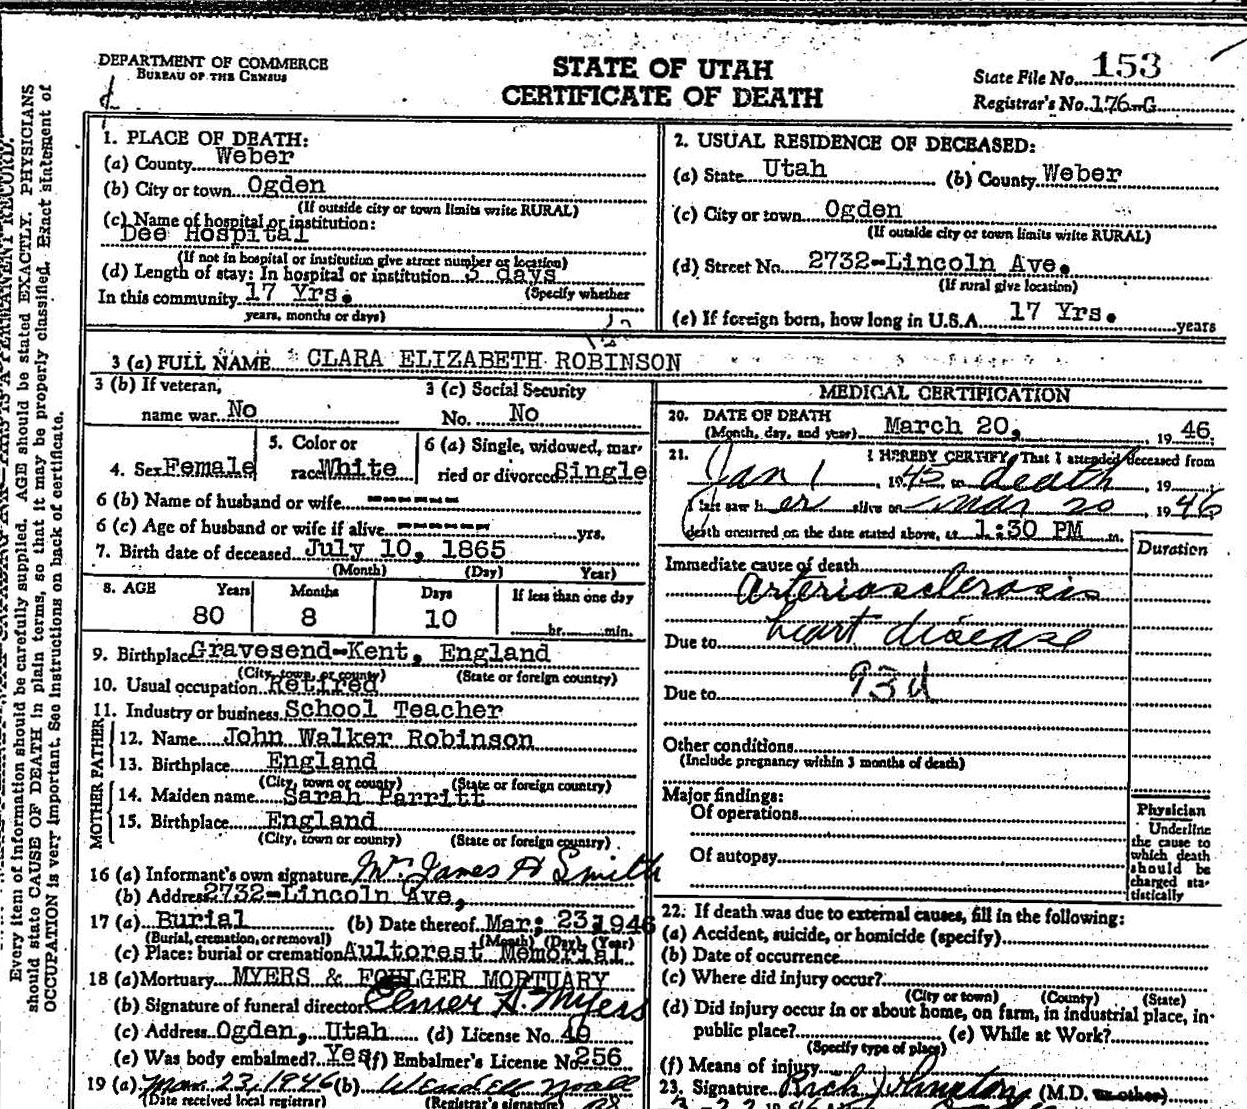 DEPARTMENT OF COMMERCE
BUREAU OF THE CENSUS
STATE OF UTAH
CERTIFICATE OF DEATH
State File No. 153
Registrar's No. 176-G
Every item of information should be carefully supplied. AGE should be stated EXACTLY. PHYSICIANS
should state CAUSE OF DEATH in plain terms, so that it may be properly classified. Exact statement of
OCCUPATION is very important. See instructions on back of certificate.
1. PLACE OF DEATH:
(a) County Weber
(b) City or town Ogden
(If outside city or town limits write RURAL)
(c) Name of hospital or institution:
Dee Hospital
(If not in hospital or institution give street number or location)
(d) Length of stay: In hospital or institution 3 days
In this community 17 Yrs. (Specify whether
years, months or days)
2. USUAL RESIDENCE OF DECEASED:
(a) State Utah (b) County Weber
(c) City or town Ogden
(If outside city or town limits write RURAL)
(d) Street No. 2732-Lincoln Ave.
(If rural give location)
(e) If foreign born, how long in U.S.A. 17 Yrs. years
3 (a) FULL NAME CLARA ELIZABETH ROBINSON
3 (b) If veteran, name war No
3 (c) Social Security No. No
4. Sex Female
5. Color or race White
6 (a) Single, widowed, married or divorced Single
6 (b) Name of husband or wife ----
6 (c) Age of husband or wife if alive ---- yrs.
7. Birth date of deceased July 10, 1865
(Month) (Day) Year)
8. AGE Years Months Days If less than one day
80 8 10 hr. min.
9. Birthplace Gravesend-Kent, England
(City, town, or county) (State or foreign country)
10. Usual occupation Retired
11. Industry or business School Teacher
FATHER
12. Name John Walker Robinson
13. Birthplace England
(City, town or county) (State or foreign country)
MOTHER
14. Maiden name Sarah Parritt
15. Birthplace England
(City, town or county) (State or foreign country)
16 (a) Informant's own signature Mr. James A Smith
(b) Address 2732-Lincoln Ave,
17 (a) Burial (b) Date thereof Mar; 23, 1946
(Burial, cremation, or removal) (Month) (Day) (Year)
(c) Place: burial or cremation Aultorest Memorial
18 (a) Mortuary MYERS & FOULGER MORTUARY
(b) Signature of funeral director Elmer A. Myers
(c) Address Ogden, Utah (d) License No. 40
(e) Was body embalmed? Yes (f) Embalmer's License No. 256
19 (a) Mar 23, 1946 (b) Wendell Noall
(Date received local registrar) (Registrar's signature)
MEDICAL CERTIFICATION
20. DATE OF DEATH
(Month, day, and year) March 20, 1946.
21. I HEREBY CERTIFY, That I attended deceased from
Jan 1, 1945, to death, 19
I last saw her alive on Mar 20, 1946
death occurred on the date stated above, at 1:30 PM m.
Duration
Immediate cause of death
Arteriosclerosis
Due to heart disease
Due to 93d
Other conditions
(Include pregnancy within 3 months of death)
Major findings:
Of operations
Of autopsy
Physician
Underline
the cause to
which death
should be
charged sta-
tistically
22. If death was due to external causes, fill in the following:
(a) Accident, suicide, or homicide (specify)
(b) Date of occurrence
(c) Where did injury occur?
(City or town) (County) (State)
(d) Did injury occur in or about home, on farm, in industrial place, in
public place? (e) While at Work?
(Specify type of place)
(f) Means of injury
23. Signature Rich Johnston (M.D. or other)